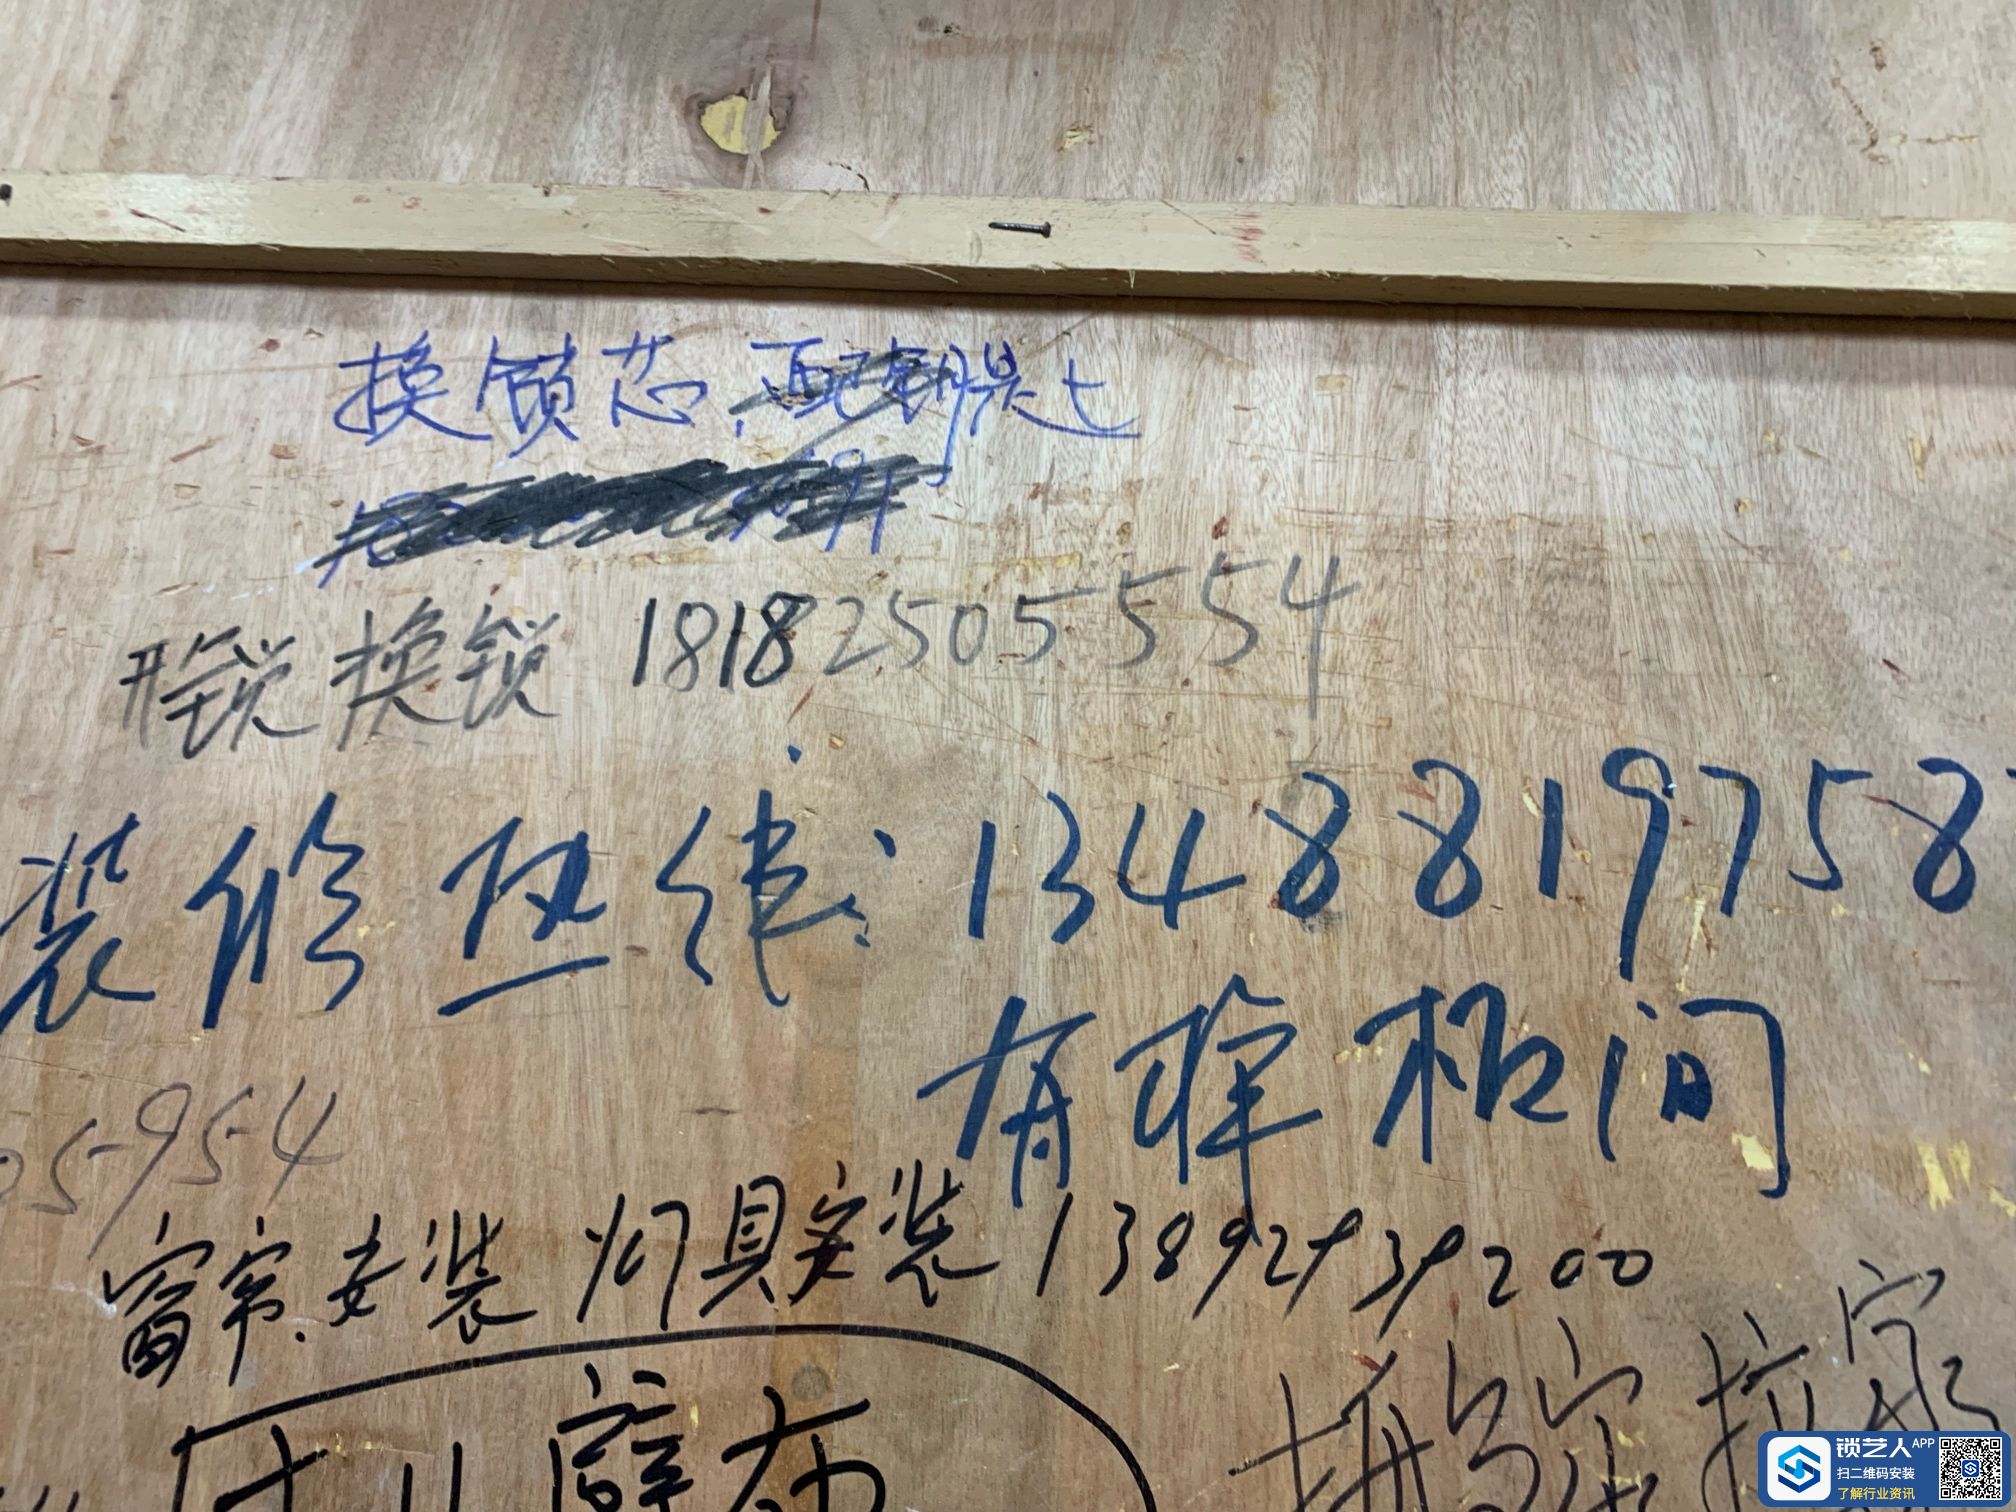 换锁芯,配钥匙
开锁换锁 18182505554
装修热线:1348819758
有样板间
05954
窗帘安装 灯具安装 13892939200
壁布
搬家拉家
锁艺人APP
扫二维码安装
了解行业资讯